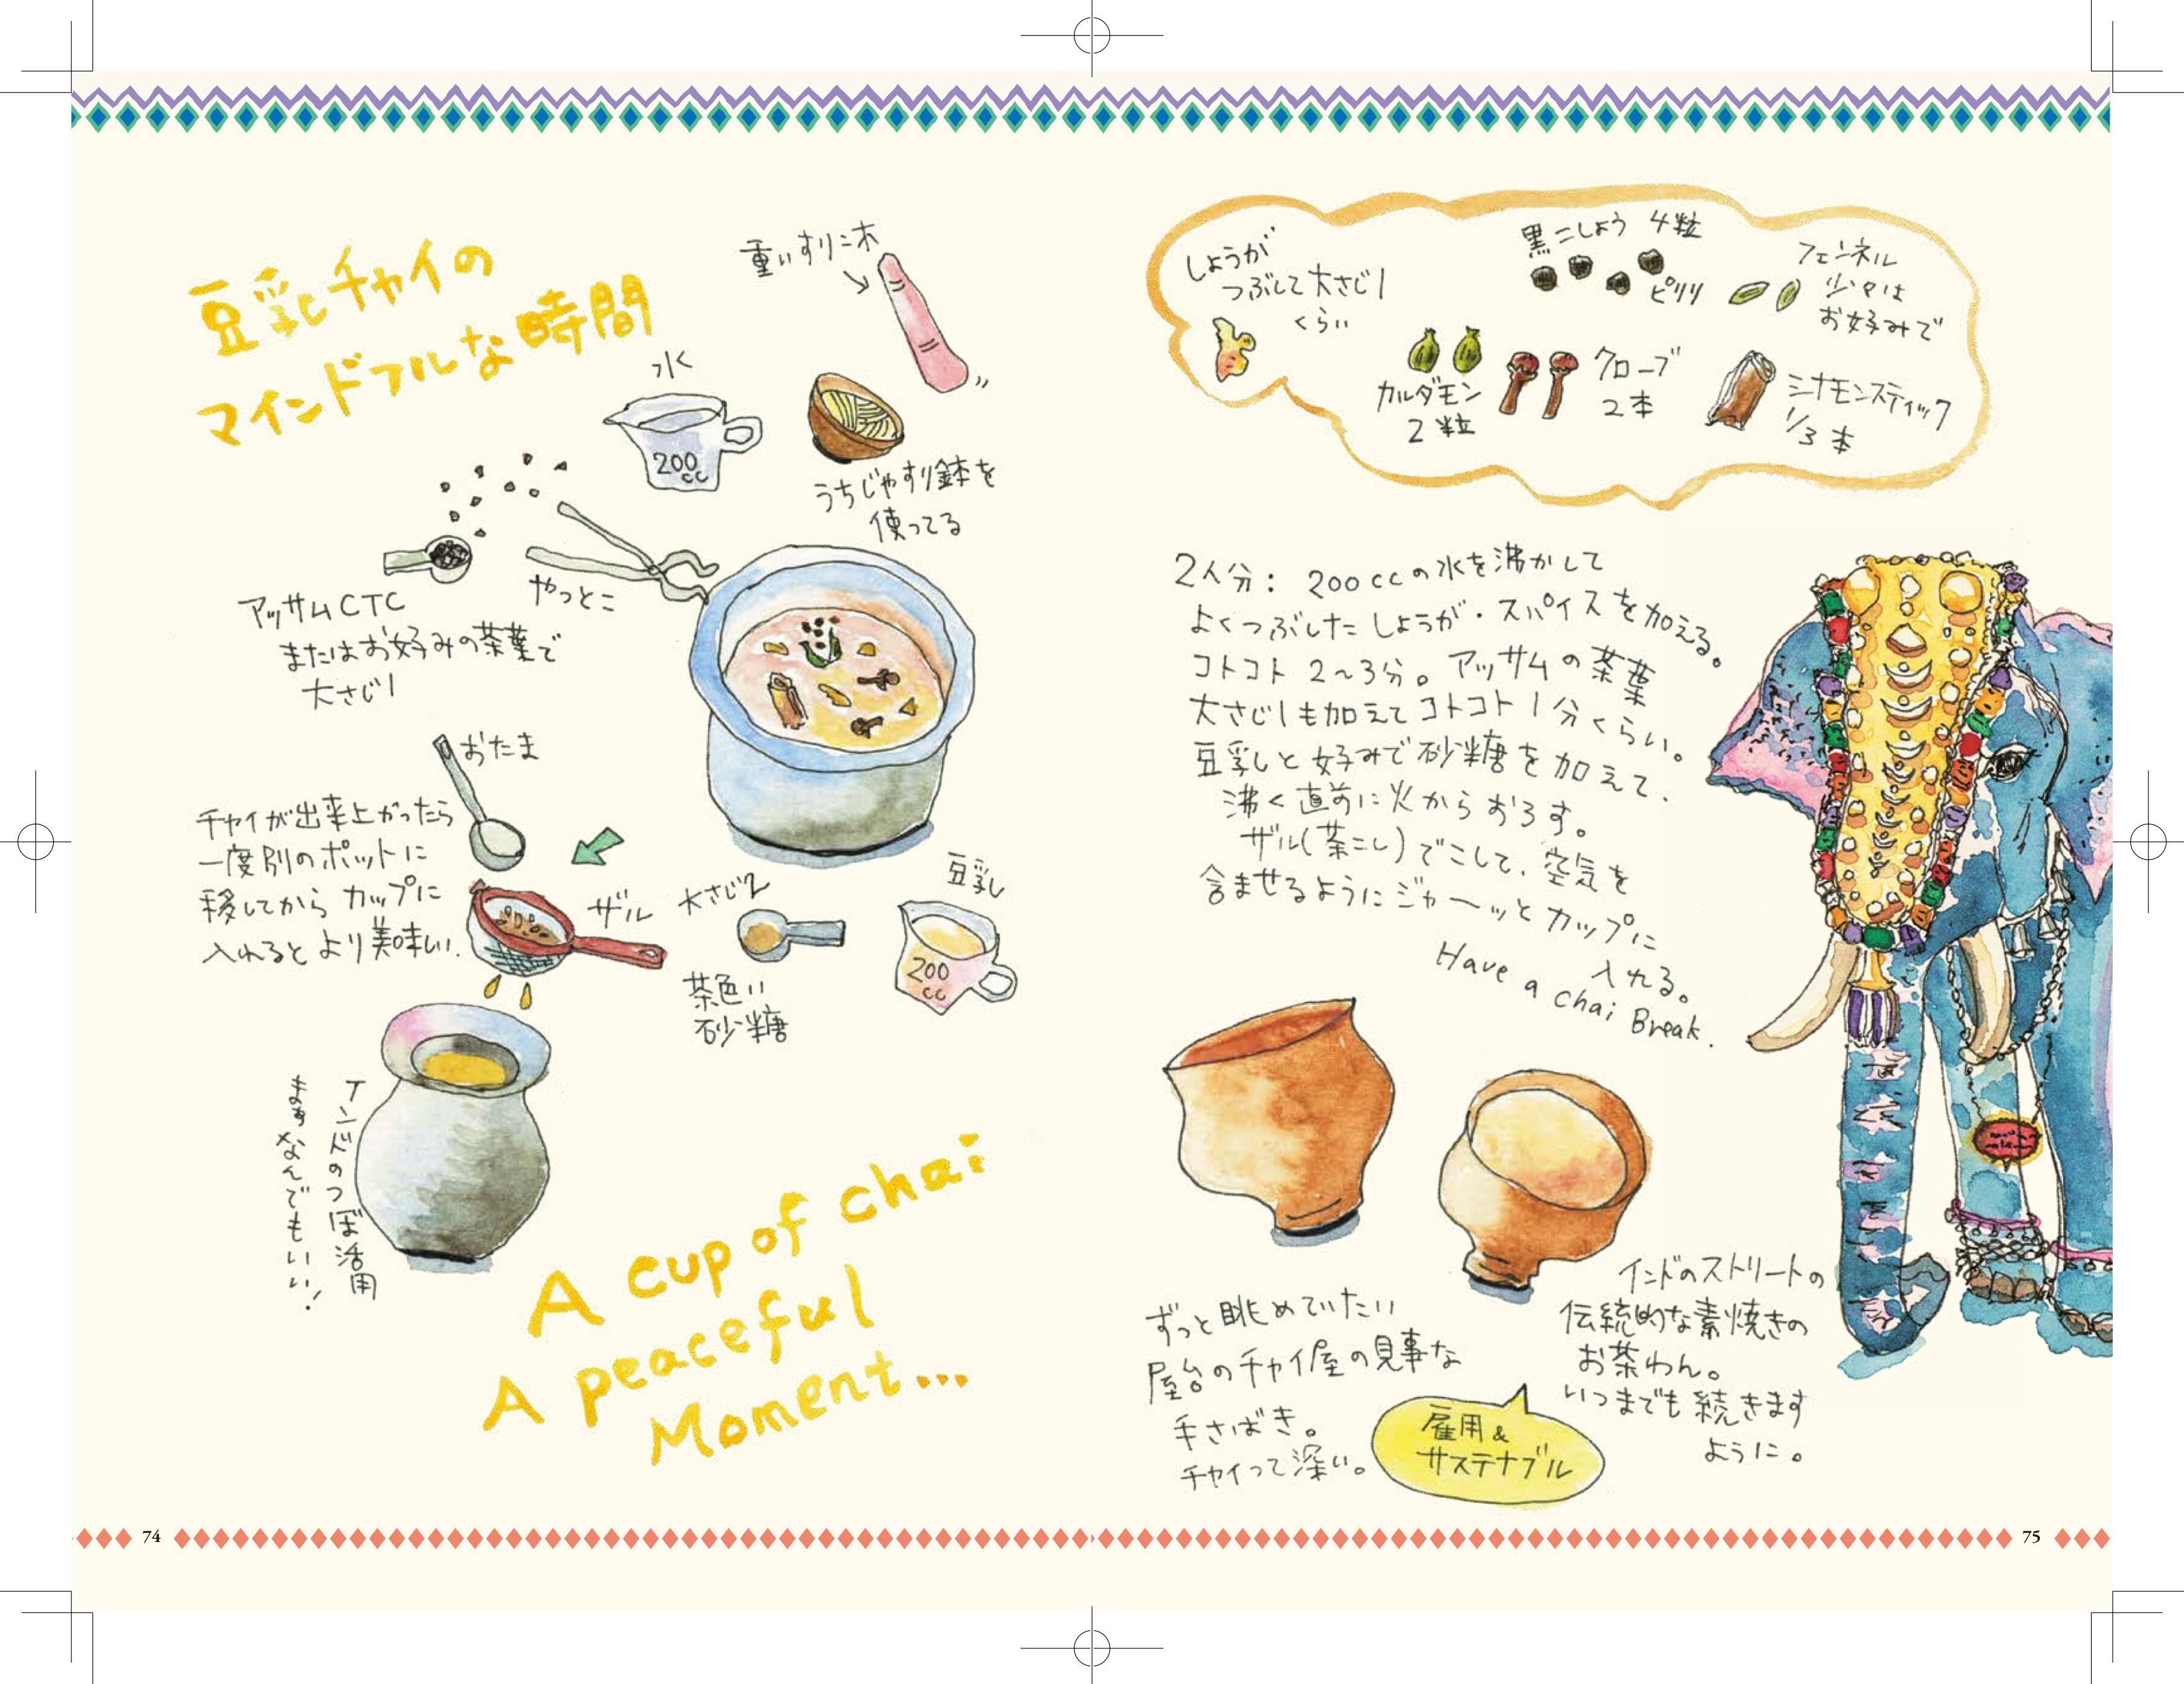 豆乳チャイの
マインドフルな時間
重いすりこ木
水
200
cc
うちじゃすり鉢を
使ってる
やっとこ
アッサムCTC
またはお好みの茶葉で
大さじ1
おたま
チャイが出来上がったら
一度別のポットに
移してから カップに
入れると より美味い.
ザル
大さじ2
茶色い
砂糖
豆乳
200
cc
インドのつぼ活用
まぁなんでもいい!
A cup of chai
A peaceful
Moment...
74
しょうが
つぶして大さじ1
くらい
黒こしょう 4粒
ピリリ
フェンネル
少々は
お好みで
カルダモン
2粒
クローブ
2本
シナモンスティック
1/3本
2人分: 200ccの水を沸かして
よくつぶしたしょうが・スパイスを加える。
コトコト 2〜3分。アッサムの茶葉
大さじ1も加えてコトコト1分くらい。
豆乳と好みで砂糖を加えて、
沸く直前に火からおろす。
ザル(茶こし)でこして、空気を
含ませるようにジャーッとカップに
入れる。
Have a chai Break.
ずっと眺めていたい
屋台のチャイ屋の見事な
手さばき。
チャイって深い。
雇用&
サステナブル
インドのストリートの
伝統的な素焼きの
お茶わん。
いつまでも続きます
ように。
75